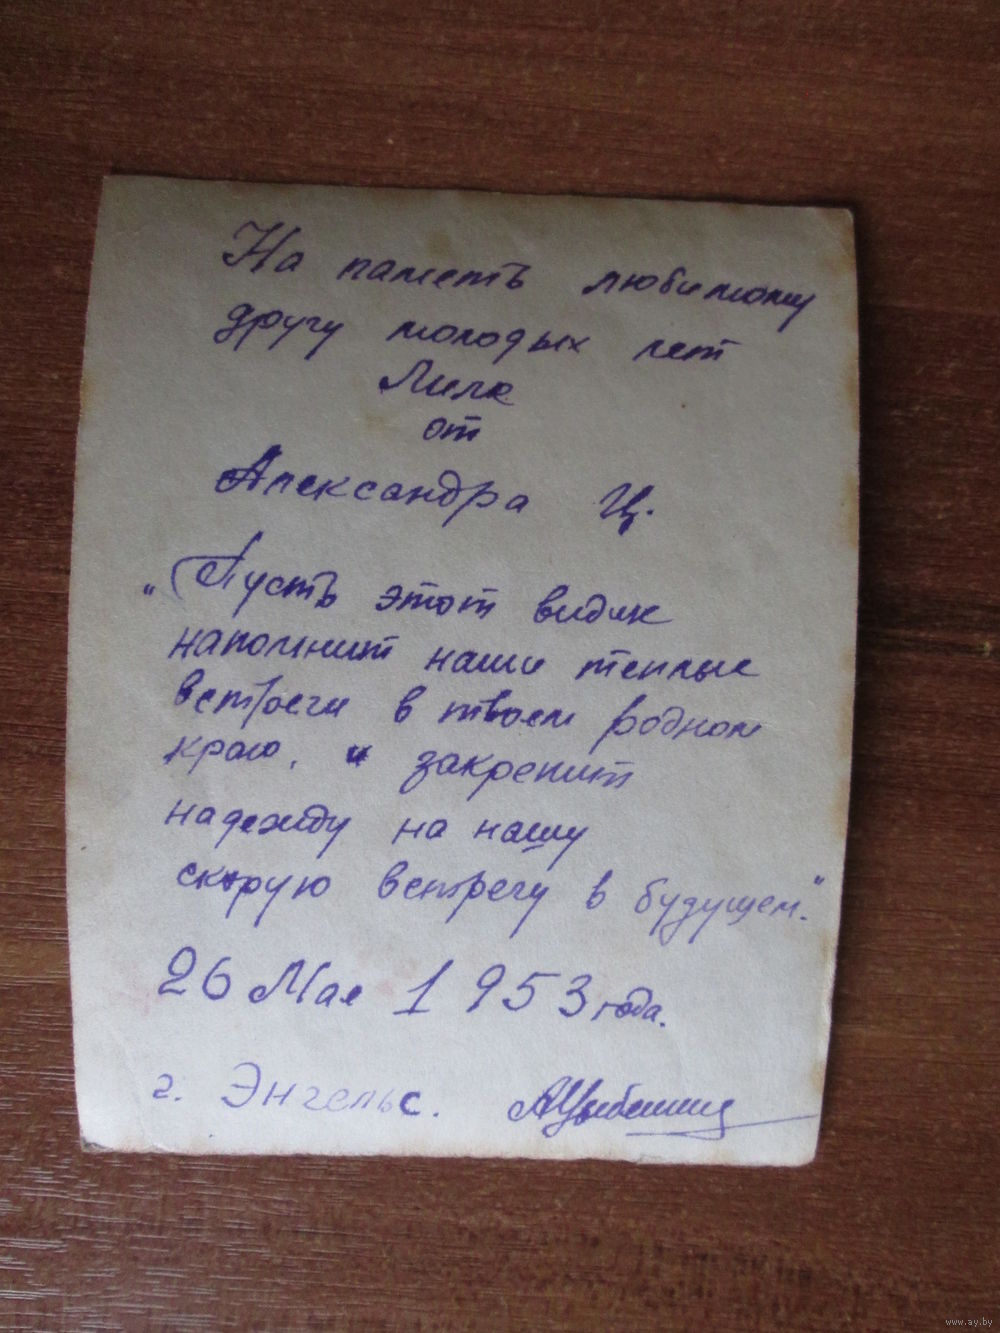 На паметь любимому
другу молодых лет
Лиле
от
Александра Ц.
"Пусть этот видик
напомнит наши теплые
встречи в твоем родном
краю, и закрепит
надежду на нашу
скорую встречу в будущем."
26 Мая 1953 года.
г. Энгельс.
www.ay.by